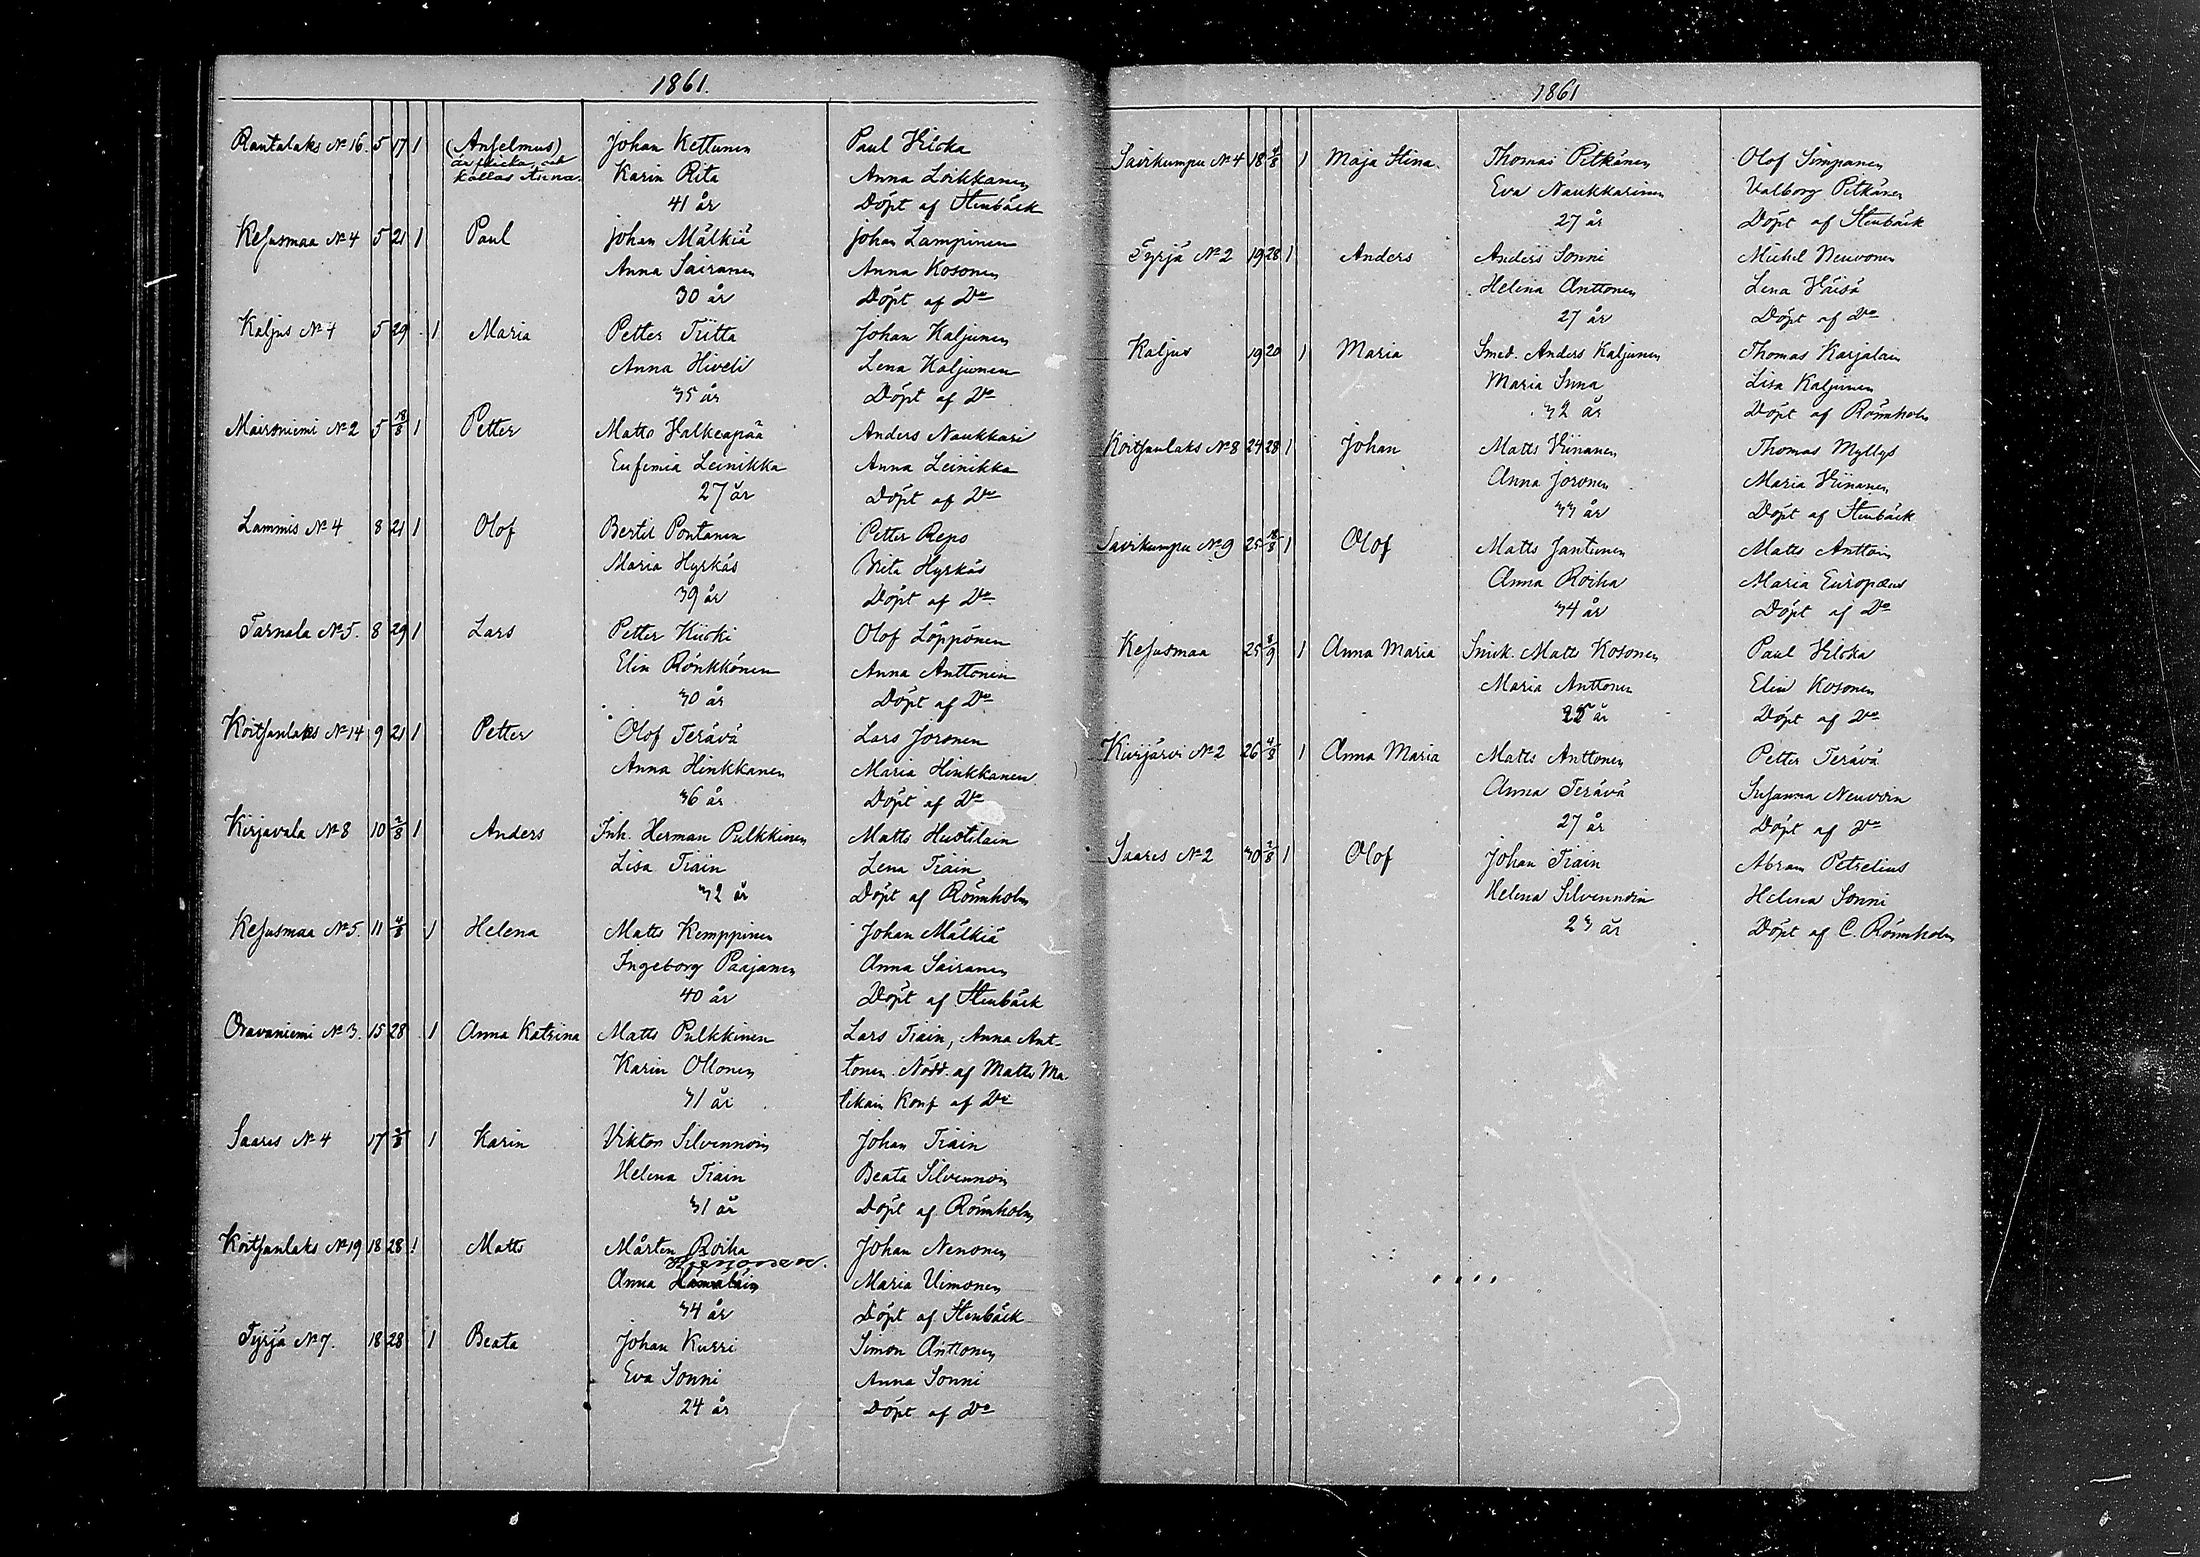 1861.
Rautalaks No 16. 5 17 1 (Anselmus) Johan Kettunen Paul Hilska
är flicka och Karin Rita Anna Loikkanen
kallas Anna. 41 år Döpt af Stenbäck
Kesusmaa No 4 5 21 1 Paul Johan Mälkiä Johan Lampinen
Anna Sairanen Anna Kosonen
30 år Döpt af Do
Kaljus No 4 5 29 1 Maria Petter Tiitta Johan Kaljunen
Anna Hiveli Lena Kaljunen
35 år Döpt af Do
Maironiemi No 2 5 18/8 1 Petter Matts Halkeapää Anders Naukkari
Eufemia Leinikka Anna Leinikka
27 år Döpt af Do
Lammis No 4 8 21 1 Olof Bertil Pontanen Petter Repo
Maria Hyrkäs Rita Hyrkäs
39 år Döpt af Do
Tarnala No 5. 8 29 1 Lars Petter Kiiski Olof Löppönen
Elin Rönkkönen Anna Anttonen
30 år Döpt af Do
Koitsanlaks No 14 9 21 1 Petter Olof Terävä Lars Joronen
Anna Hinkkanen Maria Hinkkanen
36 år Döpt af Do
Kirjavala No 8 10 2/8 1 Anders Inh. Herman Pulkkinen Matts Hustilain
Lisa Tiain Lena Tiain
32 år Döpt af Römholm
Kesusmaa No 5. 11 4/8 1 Helena Matts Kemppinen Johan Mälkiä
Ingeborg Paajanen Anna Sairanen
40 år Döpt af Stenbäck
Oravaniemi No 3. 15 28 1 Anna Katrina Matts Pulkkinen Lars Tiain, Anna Ant-
Karin Ollonen tonen. Nödd. af Matts Ma
31 år tikain Konf af Do
Saares No 4 17 2/8 1 Karin Viktor Silvennoin Johan Tiain
Helena Tiain Beata Silvennoin
31 år Döpt af Römholm
Koitsanlaks No 19 18 28 1 Matts Mårten Roiha Johan Nenonen
Anna Hämäläin Maria Uimonen
34 år Döpt af Stenbäck
Tyrjä No 7. 18 28 1 Beata Johan Kurri Simon Anttonen
Eva Sonni Anna Sonni
24 år Döpt af Do
1861
Savikumpu No 4 18 4/8 1 Maja Stina Thomas Pitkänen Olof Simpanen
Eva Naukkarinen Valborg Pitkänen
27 år Döpt af Stenbäck
Tyrjä No 2 19 28 1 Anders Anders Sonni Michel Neuvonen
Helena Anttonen Lena Häisä
27 år Döpt af Do
Kaljus 19 20 1 Maria Smed. Anders Kaljunen Thomas Karjalain
Maria Inna Lisa Kaljunen
32 år Döpt af Römholm
Koitsanlaks No 8 24 28 1 Johan Matts Hinanen Thomas Myllys
Anna Joronen Maria Hinanen
33 år Döpt af Stenbäck
Savikumpu No 9 25 18/8 1 Olof Matts Jantunen Matts Anttoin
Anna Roiha Maria Europæus
34 år Döpt af Do
Kesusmaa 25 8/9 1 Anna Maria Matts Kosonen Paul Hilska
Maria Anttonen Elin Kosonen
25 år Döpt af Do
Kivijärvi No 2 26 4/8 1 Anna Maria Matts Anttonen Petter Terävä
Anna Terävä Susanna Neuvoin
27 år Döpt af Do
Saares No 2 30 2/8 1 Olof Johan Tiain Abram Petrelius
Helena Silvennoin Helena Sonni
23 år Döpt af C. Römholm